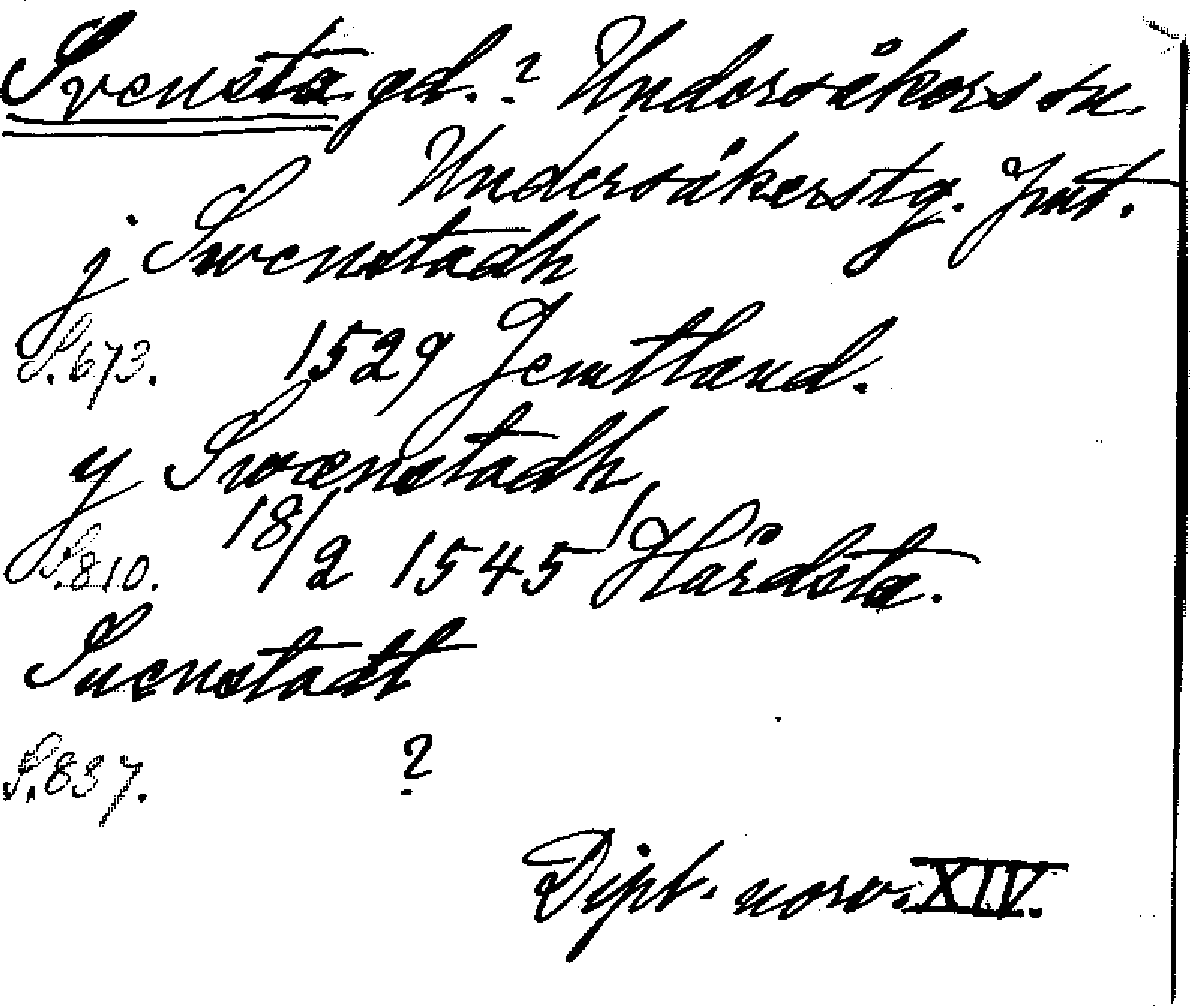 Svensta gd.? Undersåkers sn.
Undersåkerstg. Jmt.
j Swenstadh
S.673. 1529 Jemtland.
y Swænstadh
S.810. 18/2 1545 Hårdsta.
Suenstadt
S.837. ?
Dipl. norv. XIV.